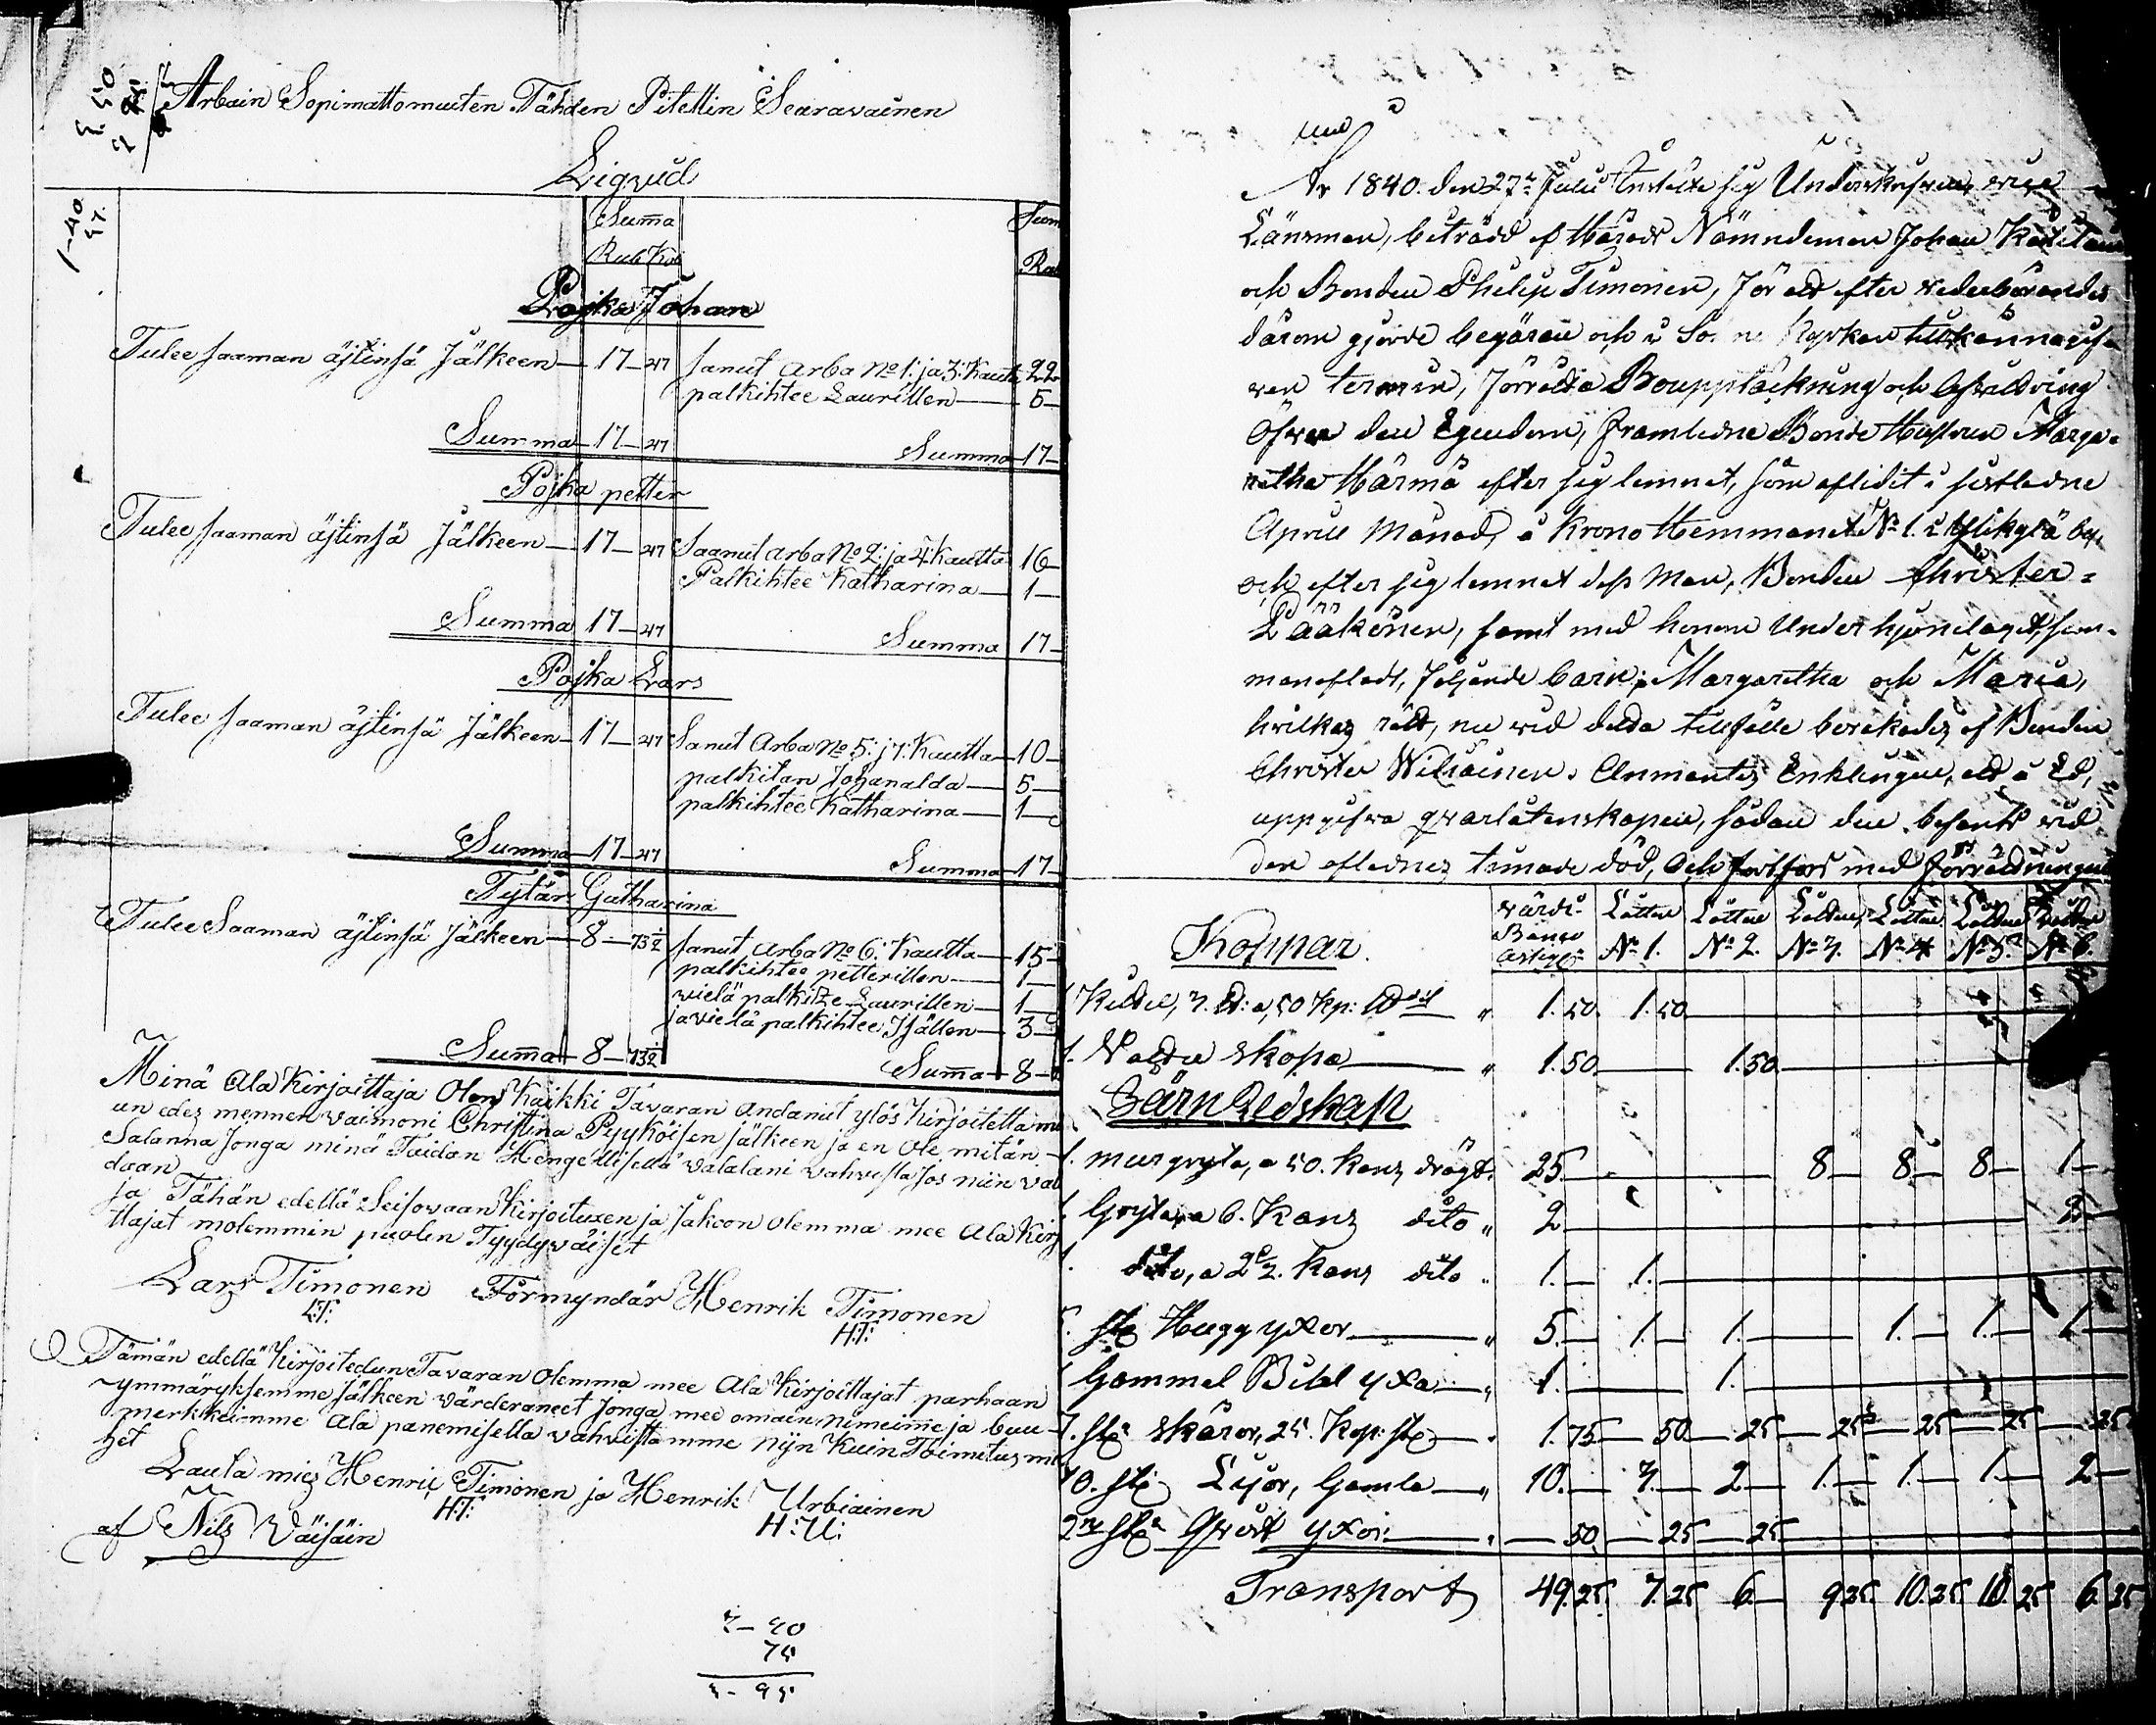 Arbain Sopimattomuiten Tähden Pitettin Seuravainen
Liqvid
Suma
Rub Kop
Pojka Johan
Tulee saaman äjtinsä Jälkeen — 17 — 47
Sanut Arba No 1: ja 3: Kautta 22
palkihtee Laurillen — 5 —
Summa — 17 — 47
Summa — 17 —
Pojka petter
Tulee saaman äjtinsä Jälkeen — 17 — 47
Saanut arba No 2: ja 4: Kautta 16 —
Palkihtee Katharina — 1 —
Summa 17 — 47
Summa 17 —
Pojka Lars
Tulee saaman äjtinsä Jälkeen — 17 — 47
Sanut Arba No 5: j 7: Kautta — 10 —
palkitan Johanalda — 5 —
palkihtee Katharina — 1 —
Summa — 17 — 47
Summa — 17 —
Tytär Gatharina
Tulee Saaman äjtinsä Jälkeen — 8 — 73½
Sanut Arba No 6: Kautta — 15 —
palkihtee petterillen — 1 —
vielä palkitze Laurillen — 1 —
ja vielä palkihtee Isällen — 3 —
Suma — 8 — 73½
Suma — 8 —
Minä Ala Kirjoittaja Olen Kaikki Tavaran andanut ylös Kirjoitetta
un edez mennen vaimoni Christina Pyyköisen jälkeen ja en Ole mitän
Salanna Jonga minä Taidan Hengellisellä valalani vahvistaa Jos niin
daan
ja Tähän edellä Seisovaan Kirjoituxen ja Jakoon olemma mee Ala Kirj
ttajat molemmin puolen Tyydyväiset
Lars Timonen Förmyndär Henrik Timonen
L:T: H:T:
Tämän edellä Kirjoitedun Tavaran Olemma mee Ala Kirjoittajat parhaan
ymmäryksemme Jälkeen värderaneet Jonga mee omain nimeime ja buu-
merkkeimme ala panemisella vahvistamme niin Kuin Toimitus
het
Lauta miez Henric Timonen ja Henrik Urbiainen
H:T: H:U:
af Nils Väisäin
År 1840. den 27de Julii Instälte sig Underskrefven
Länsman, biträdd af Härads Nämndeman Johan
och Bonden Philip Timonen, för att efter vederbörandes
därom gjorde begäran och i Kyrkan tillkännagif-
ven termin, förrätta Bouppteckning och Afvittring
Öfver den Egendom, framledne Bonde Hustrun Marga-
retha Härmä efter sig lemnat, som aflidit i sistledne
April Månad, å Krono Hemmanet No 1. i by,
och efter sig lemnat dess Man, Bonden Christer
Pääkönen, samt med honom Under hjonelaget sam-
manaflade, följande barn; Margaretha och Maria,
hvilkas rätt, nu vid detta tillfälle bevakades af Bonden
Christer. Anmantes Enklingen, att å Ed,
uppgifva qvarlåtenskapen, sådan den befants vid
den aflednes timade död, Och fortfors med förrättningen
Värde Banco Assign: Lotten No 1. Lotten No 2. Lotten No 3. Lotten No 4 Lotten No 5 Lotten No 6.
Koppar.
1.50. 1.50
1. skopa — 1.50 — 1.50
Järn Redskap
1. murgryta, a 50. Kanz drägt. 25. — 8 — 8 — 8 — 1 —
1. Gryta, a 6. Kanz dito „ 2 — 2 —
1. dito, a 2½. Kanz dito „ 1. — 1.
5. st: Huggyxor — „ 5. — 1. — 1. — 1. — 1. — 1 —
1. Gammal Bihl yxa — „ 1. — 1.
7. st: skäror, 25. Kop: st: — 1.75 — 50 — 25 — 25 — 25 — 25 — 25
10. st: Lijor, Gamla — „ 10. — 3. — 2 — 1. — 1. — 1. — 2 —
2ne st: yxor — 50 — 25 — 25
Transport 49.25. 7.25 6. — 9.25. 10.25 10.25 6.25